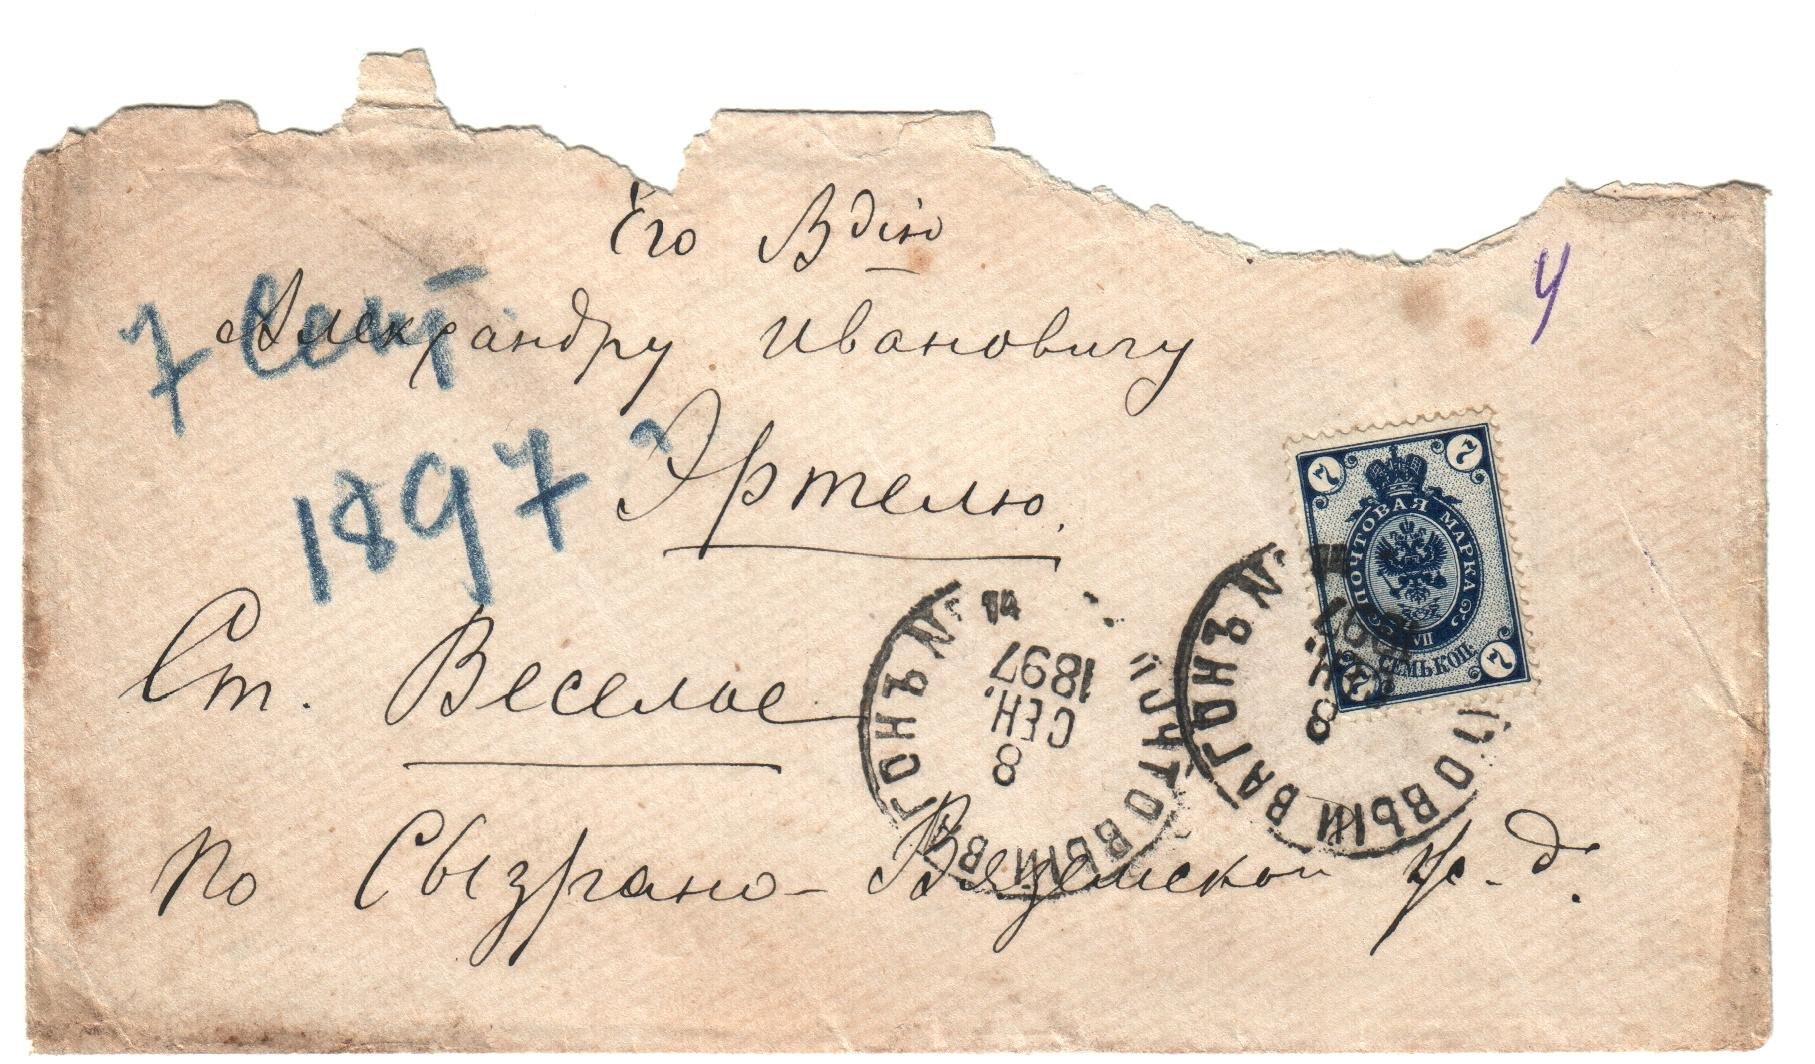 Его Вдію
Александру Ивановичу
Эртелю.
Ст. Веселое
по Сызрано-Вяземской ж. д.
7 Сент
1897
7 7
ПОЧТОВАЯ МАРКА
СЕМЬ КОП.
7 7
ПОЧТОВЫЙ ВАГОНЪ №
8
СЕН.
1897
ПОЧТОВЫЙ ВАГОНЪ №
8